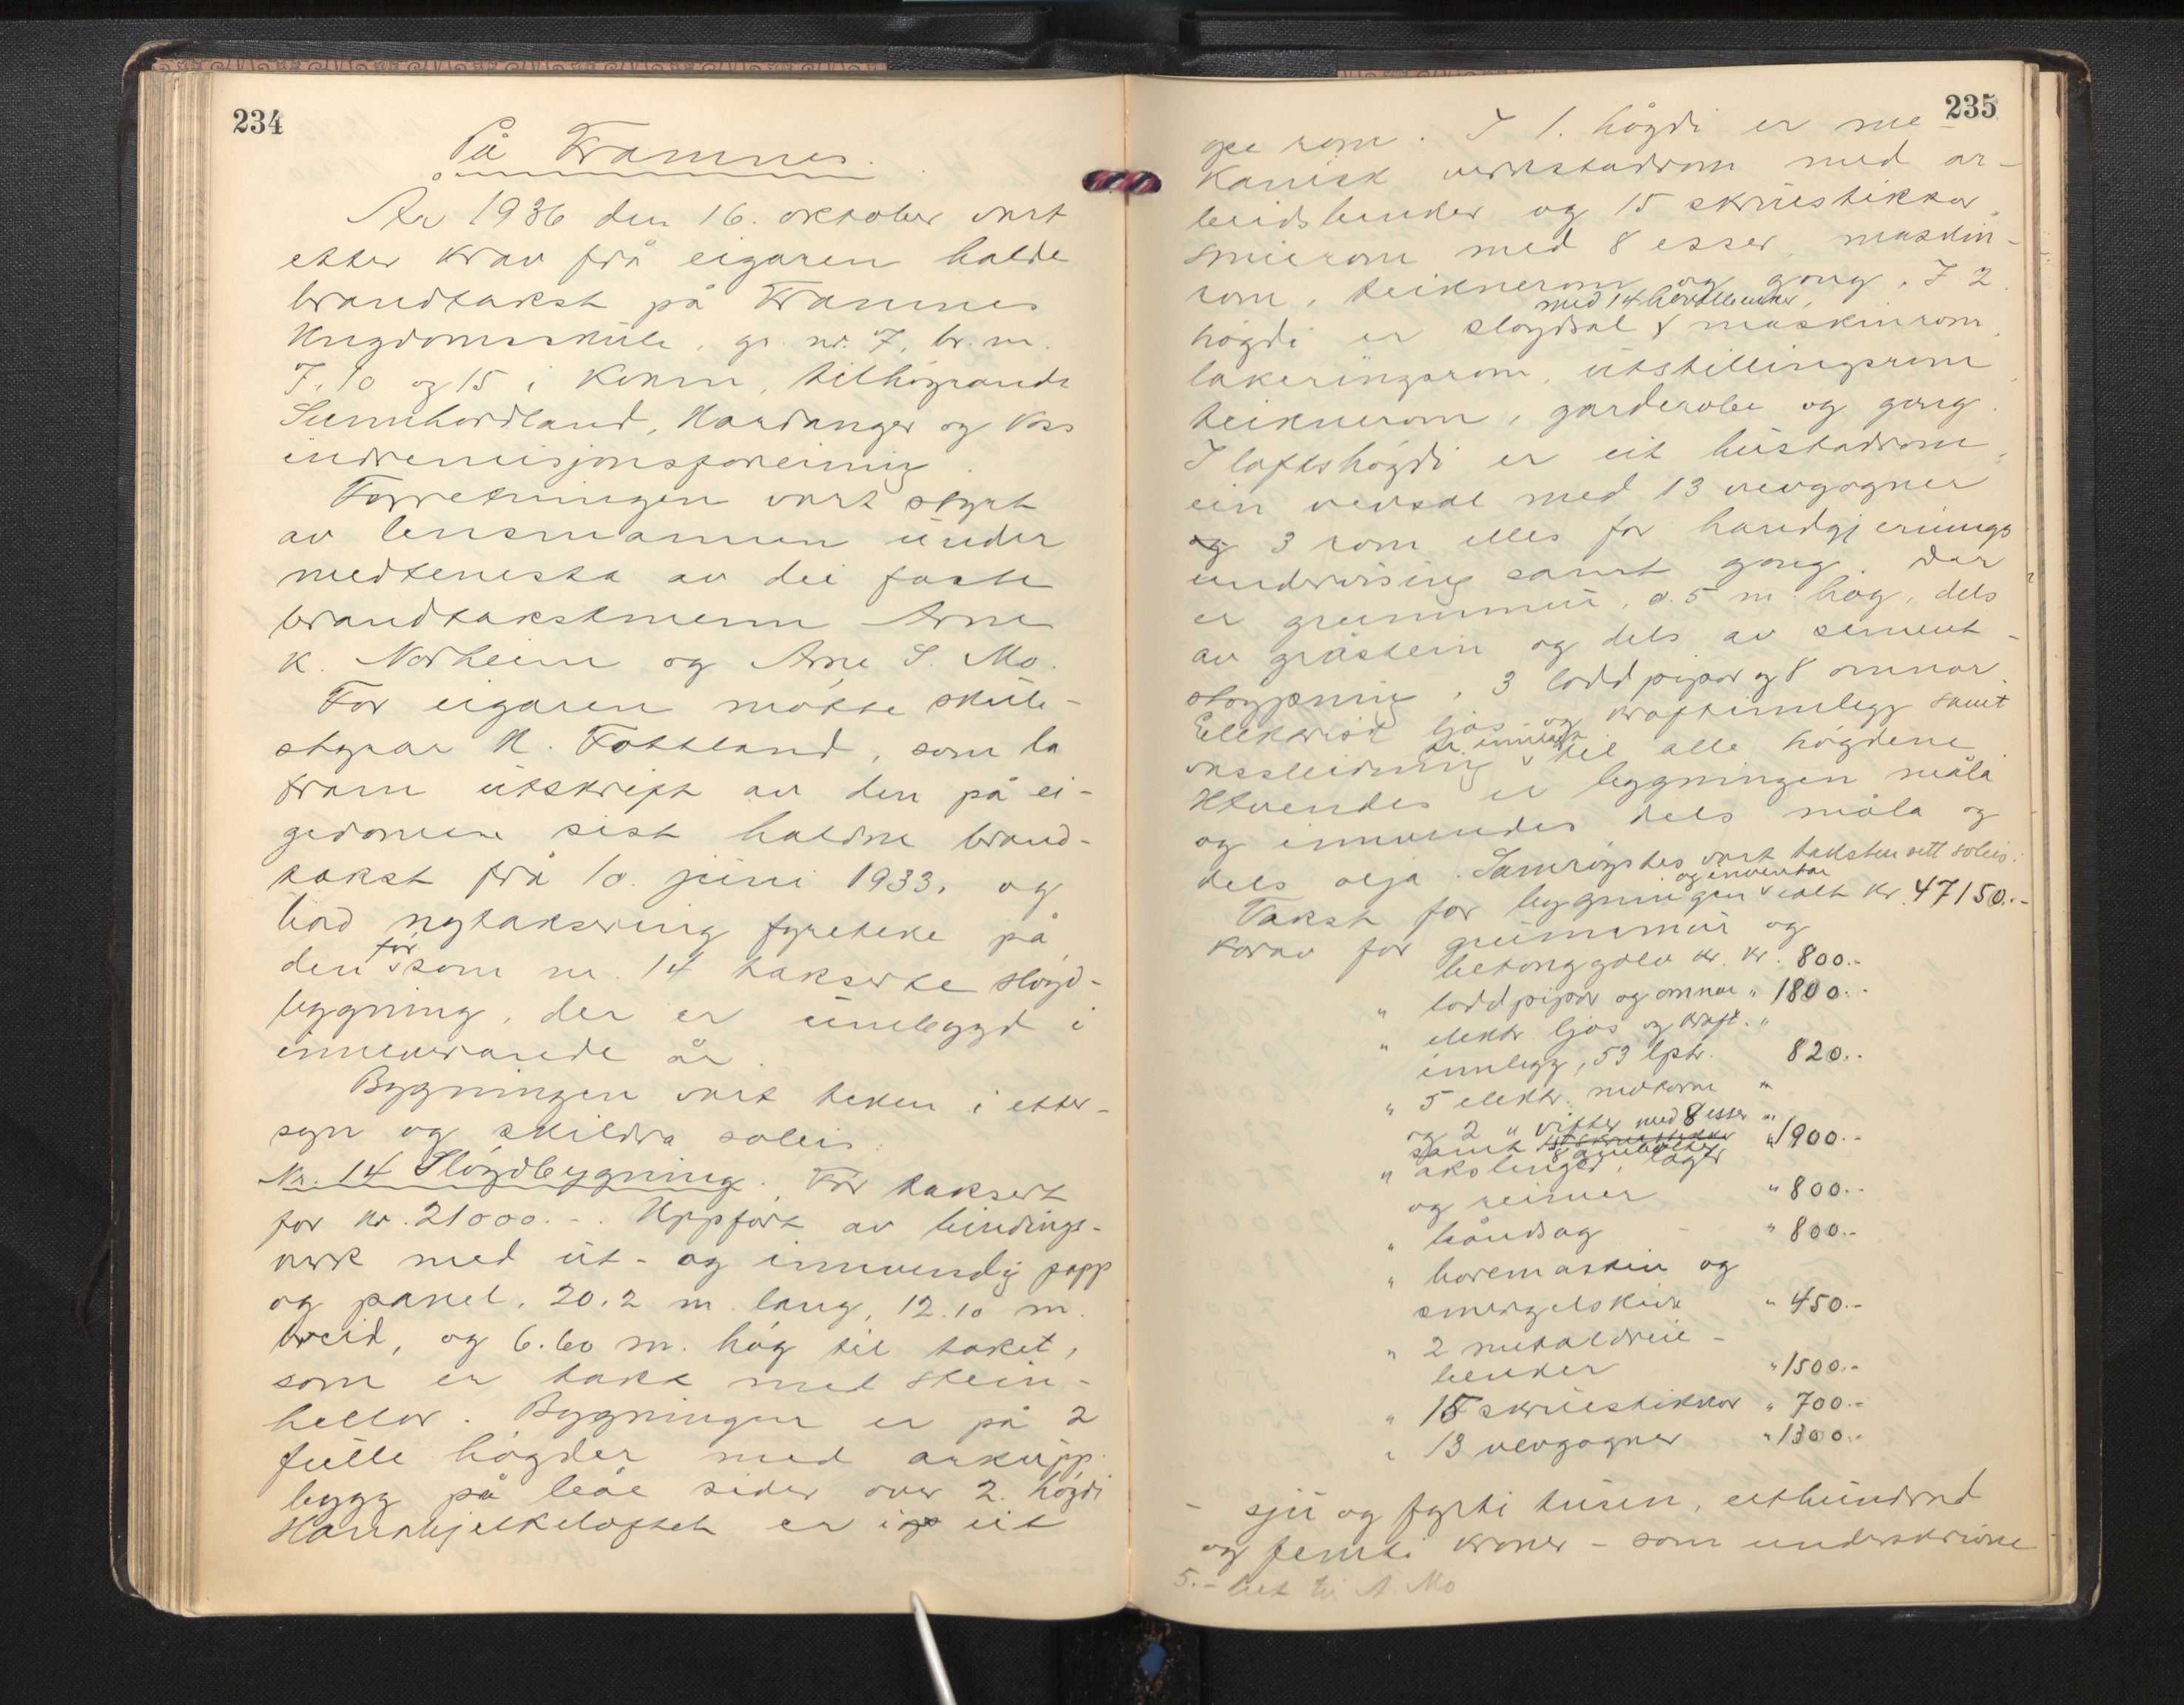 234
På Framnes.
År 1936 den 16. oktober vart
etter krav frå eigaren halde
brandtakst på Framnes
Ungdomsskule, gr. nr. 7, br. nr.
7, 10 og 15 i Kvam, tilhøyrande
Sunnhordland, Hardanger og Voss
indremisjonsforeining.
Forretningen vart styrt
av lensmannen under
medtenesta av dei faste
brandtakstmenn Arne
K. Norheim og Arne S. Mo.
For eigaren møtte skule-
styrar H. Fottland, som la
fram utskrift av den på ei-
gedomen sist haldne brand-
takst frå 10. juni 1933, og
bad nytaksering fyreteke på
den før som nr. 14 takserte sløyd-
bygning, der er umbygd i
inneverande år.
Bygningen vart teken i etter-
syn og skildra soleis:
Nr. 14 Sløydbygning. Før taksert
for kr. 21000.-. Uppført av bindings-
verk med ut- og innvendig papp
og panel, 20.2 m. lang, 12.10 m.
breid, og 6.60 m. høg til taket,
som er tekt med stein-
hellor. Bygningen er på 2
fulle høgder med arkupp-
bygg på båe sider over 2. høgdi
Hanebjelkeloftet er i eit
235
ope rom. I 1. høgdi er me-
kanisk verkstadrom med ar-
beidsbenker og 15 skruestikkor,
smierom med 8 esser, maskin-
rom, teiknerom og gong. I 2.
høgdi er sløydsal med 14 høvelbenker, maskinrom,
lakeringsrom, utstillingsrom,
teiknerom, garderobe og gong.
I loftshøgdi er eit bustadrom,
ein vevsal med 13 vevgogner
og 3 rom elles for handgjerings
undervising samt gong. Der
er grunnmur, 0.5 m. høg, dels
av gråstein og dels av sement-
støypning, 3 loddpipor og 8 omnar.
Elektrisk ljos- og kraftinnlegg samt
vassleidning er innlagt til alle høgdene.
Utvendes er bygningen måla
og innvendes dels måla og
dels olja. Samrøystes vart taksten sett soleis:
Takst for bygningen og inventar ialt kr. 47150.-
Karav for grunnmur og
betonggolv kr. kr. 800.-
" loddpipor og omnar " 1800.-
" elektr. ljos og kraft- "
innlegg, 53 lptr. 820.-
" 5 elektr. motorar "
og 2 " vifter med 8 esser "
samt 8 ambolter "1900.-
" akslinger, lagr
og reimer " 800.-
" båndsag " 800.-
" boremaskin og
smergelskive " 450.-
" 2 metaldreie-
benker " 1500.-
" 15 skruestikkor " 700.-
" 13 vevgogner " 1300.-
- sju og fyrti tusen, eithundrad
og femti kroner - som underskrivne
5.- bet til A. Mo